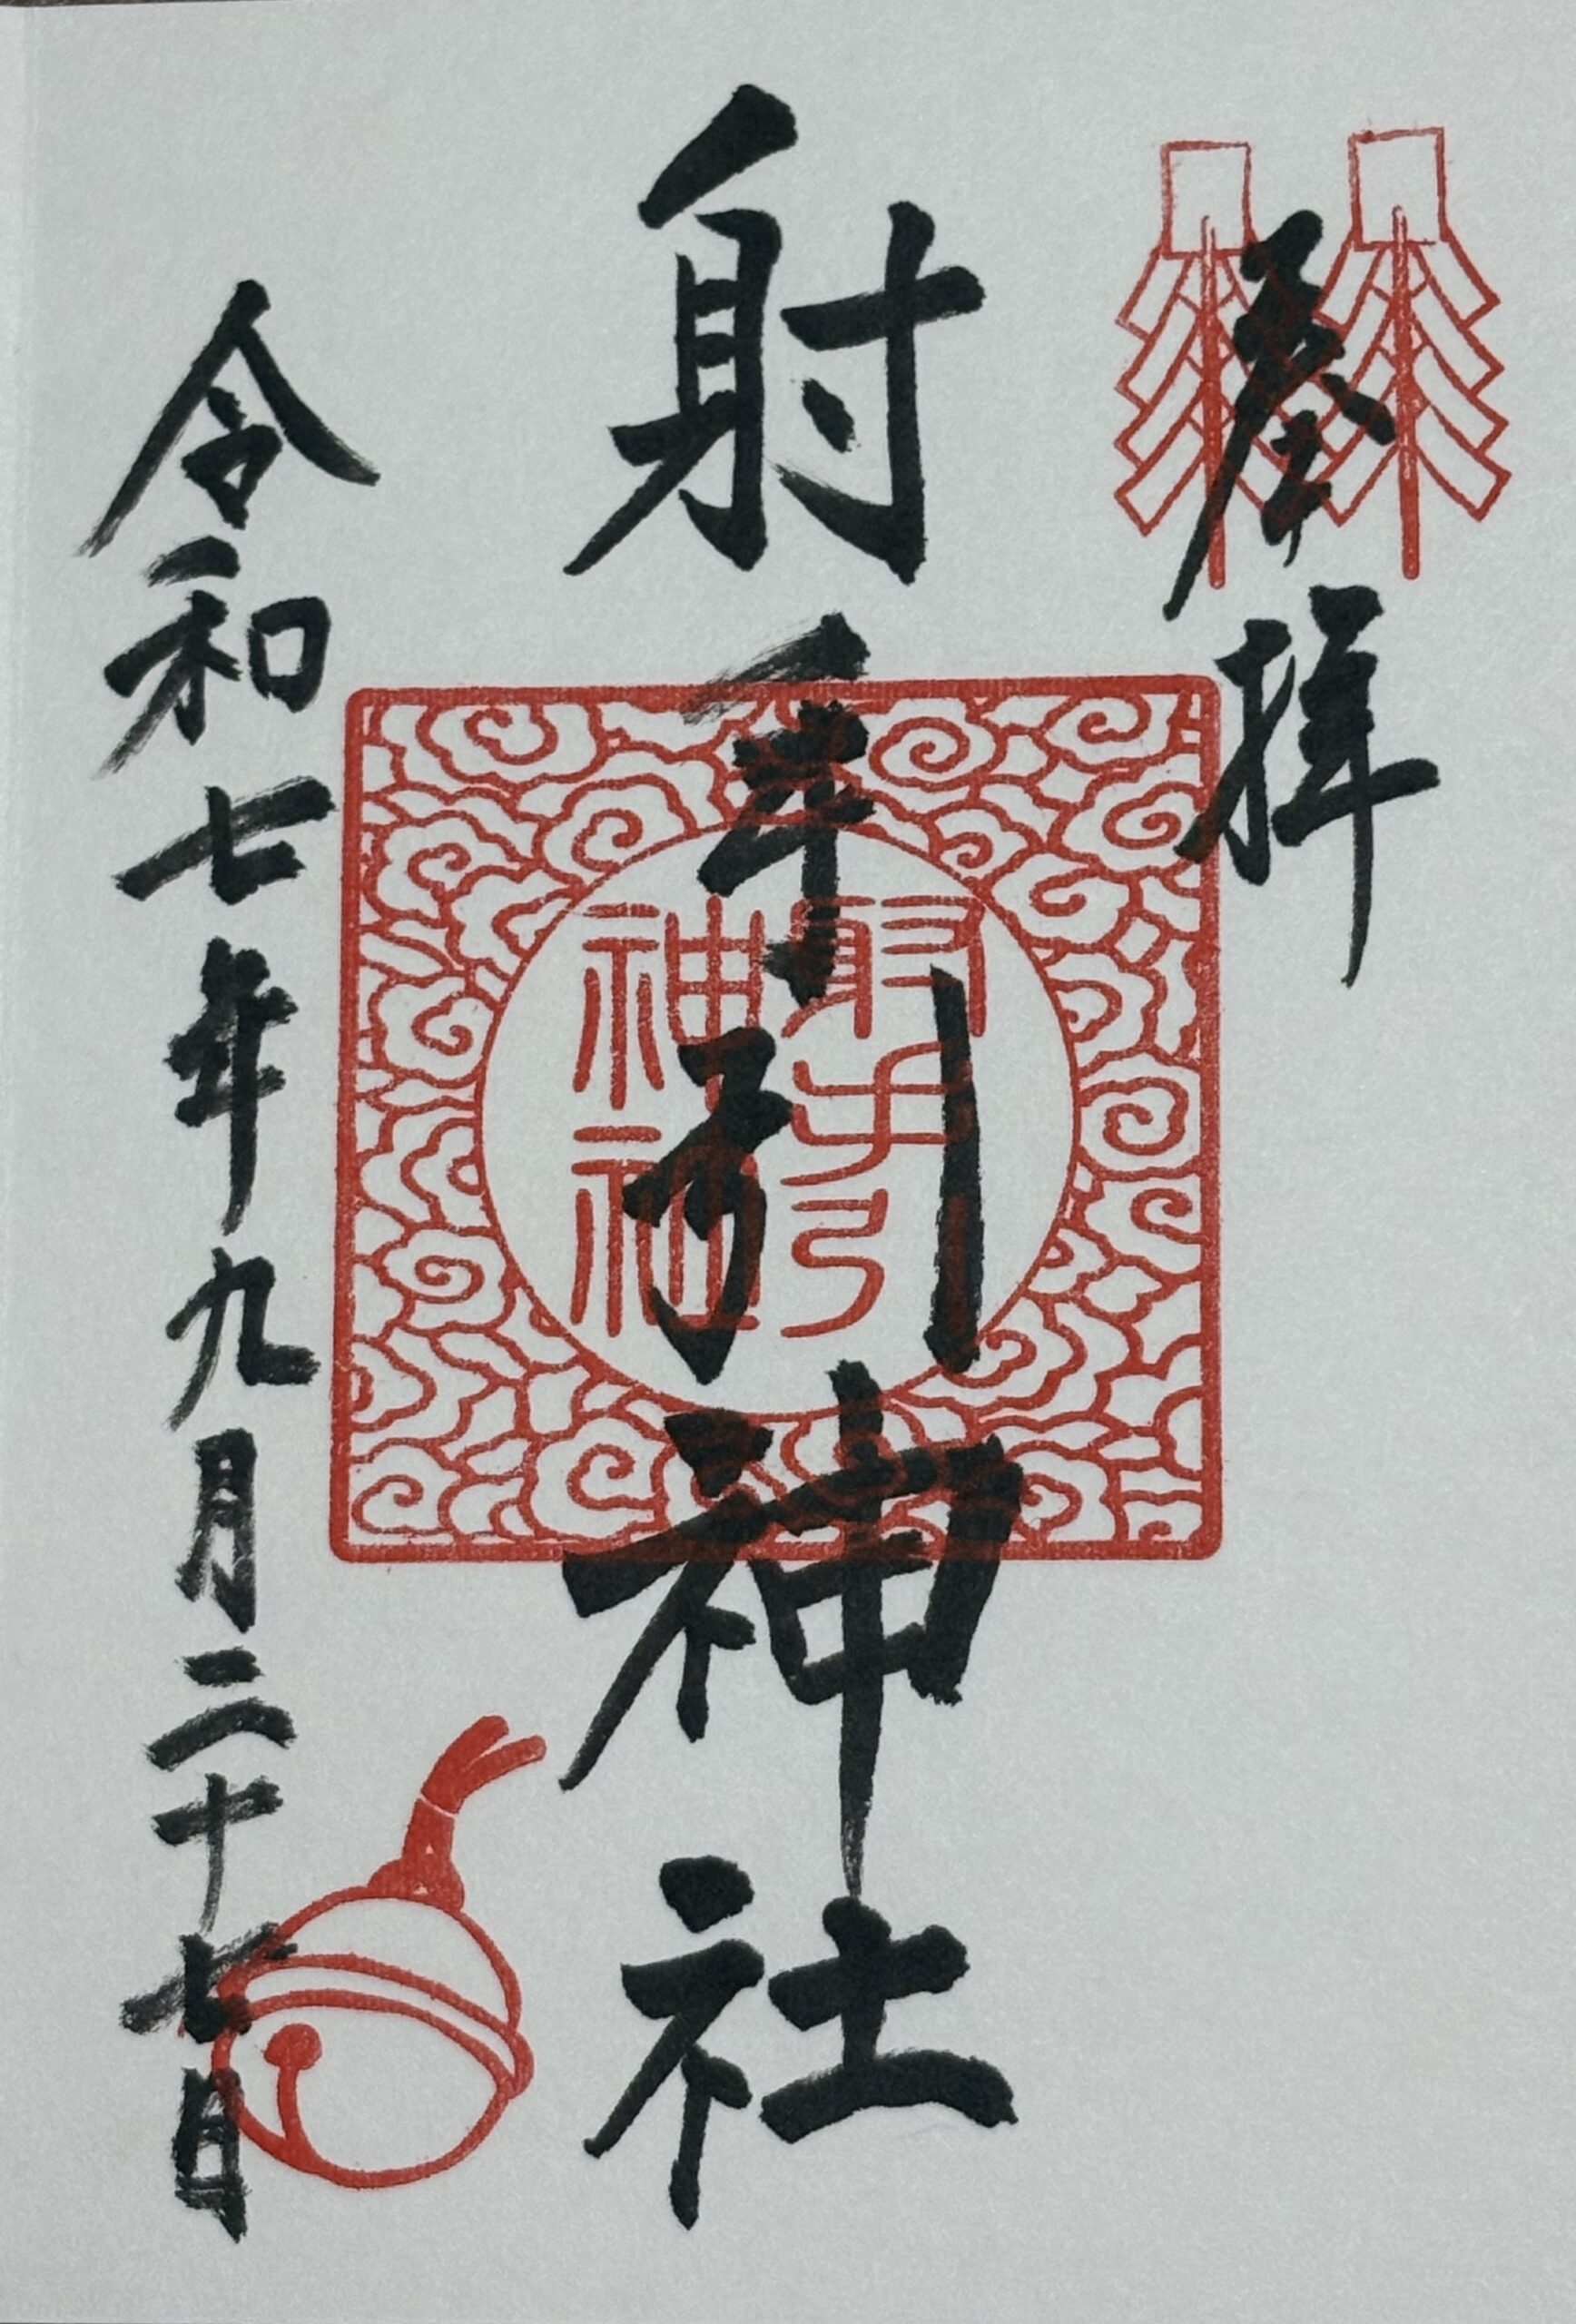 奉拝
射手引神社
射手引
神社
令和七年九月二十七日